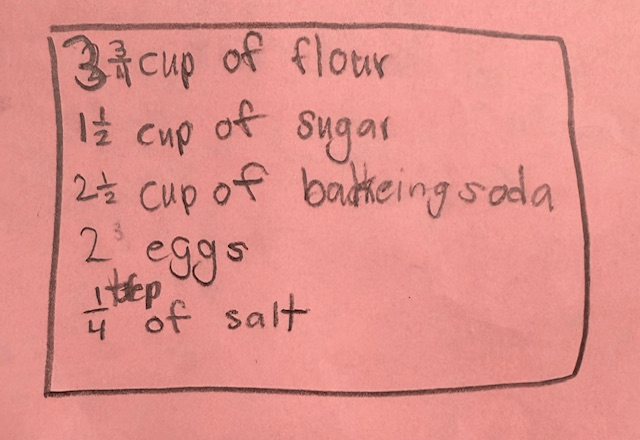 3 3/4 cup of flour
1 1/2 cup of sugar
2 1/2 cup of bakeing soda
2 eggs
1/4 of salt